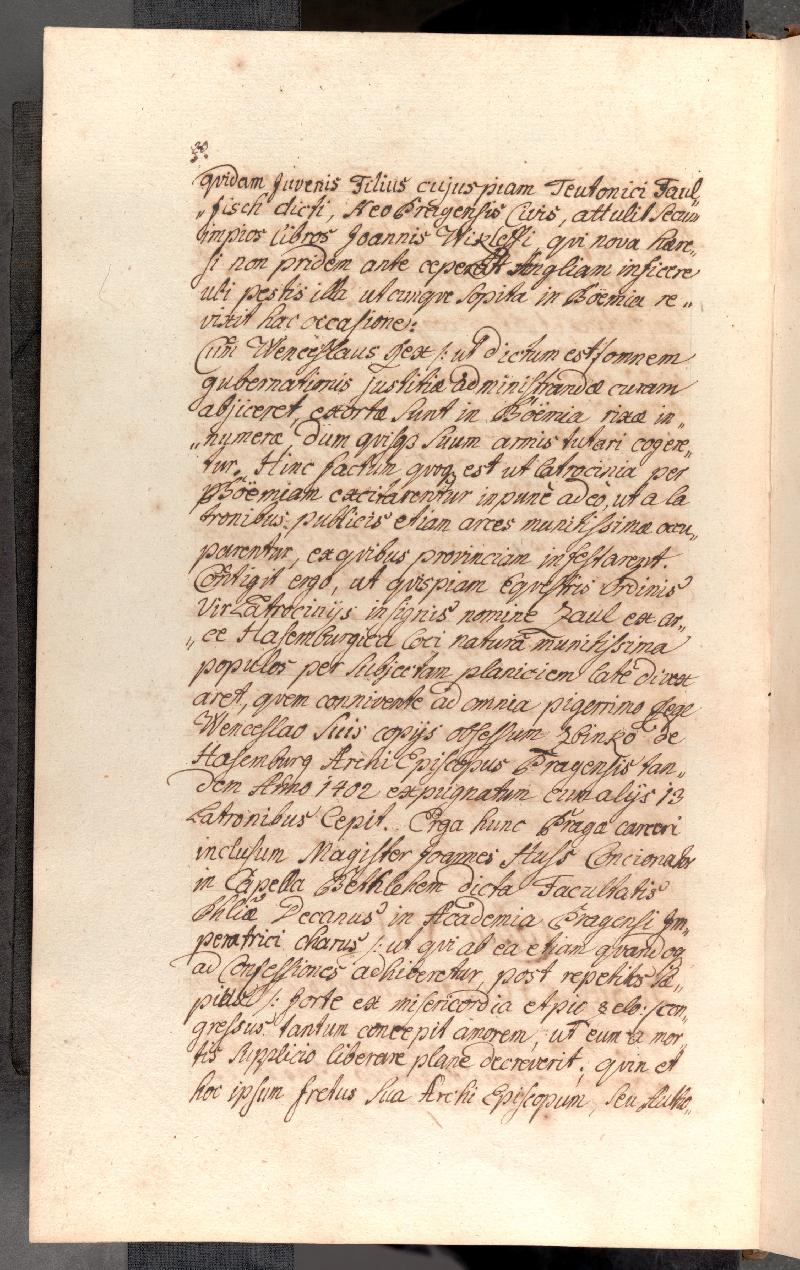 quidam Juvenis Filius cujuspiam Teutonici Faul„
„fisch dicti, Neo Pragensis Civis, attulit Secum
impios libros Joannis Wikleffi, qui nova hære„
si non pridem ante ceperat Angliam inficere
uti pestis illa utcunqve Sopita in Böemia re„
vixit hac occasione:
Cum Wenceslaus Rex /: ut dictum est/ omnem
gubernationis justitiæ administrandæ curam
abjiceret, exortæ Sunt in Böemia rixæ in„
„numeræ, dum quisqs Suum armis tutari cogere„
tur. Hinc factum quoq est ut latrocinia per
Böemiam excitarentur inpunè adeò, ut a la
tronibus publicis etiam arces munitissimæ occu„
parentur, ex qvibus provinciam infestarent.
Contigit ergo, ut qvispiam Eqvestris Ordinis
Vir Latrocinijs insignis nomine Zaul ex ar„
„ce Hasemburgica loci naturâ munitissima
populos per Subjectam planiciem late divex
aret, qvem connivente ad omnia pigerrimo Rege
Wenceslao Suis copijs obsessum Zbinko de
Hasemburg Archi Episcopus Pragensis tan„
dem Anno 1402 expugnatum cum alijs 13
Latronibus Cepit. Erga hunc Pragæ carceri
inclusum Magister Joannes Huss Concionator
in Capella Bethlehem dicta Facultatis
Phliæ Decanus in Academia Pragensi Im„
peratrici charus /: ut qui ab ea etiam quandoq
ad Confessiones adhiberetur, post repetitos Sæ„
pius /: forte ex misericordia et pio zelo:/ con„
gressus tantum concepit amorem, ut eum a mor„
tis Supplicio liberare plane decreverit; quin et
hoc ipsum fretus Sua Archi Episcopum, Seu Autho„